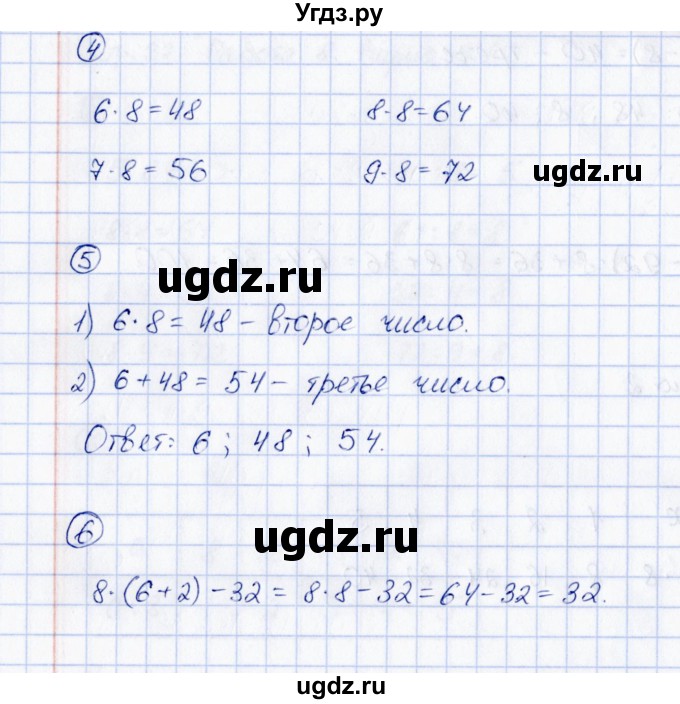 Угдз.ру
4
6·8=48 8·8=64
7·8=56 9·8=72
ugdz.ru
5
ugdz.ru
1) 6·8=48 – второе число.
2) 6+48=54 – третье число.
Ответ: 6; 48; 54.
6
ugdz.ru
8·(6+2)-32=8·8-32=64-32=32.
ugdz.ru